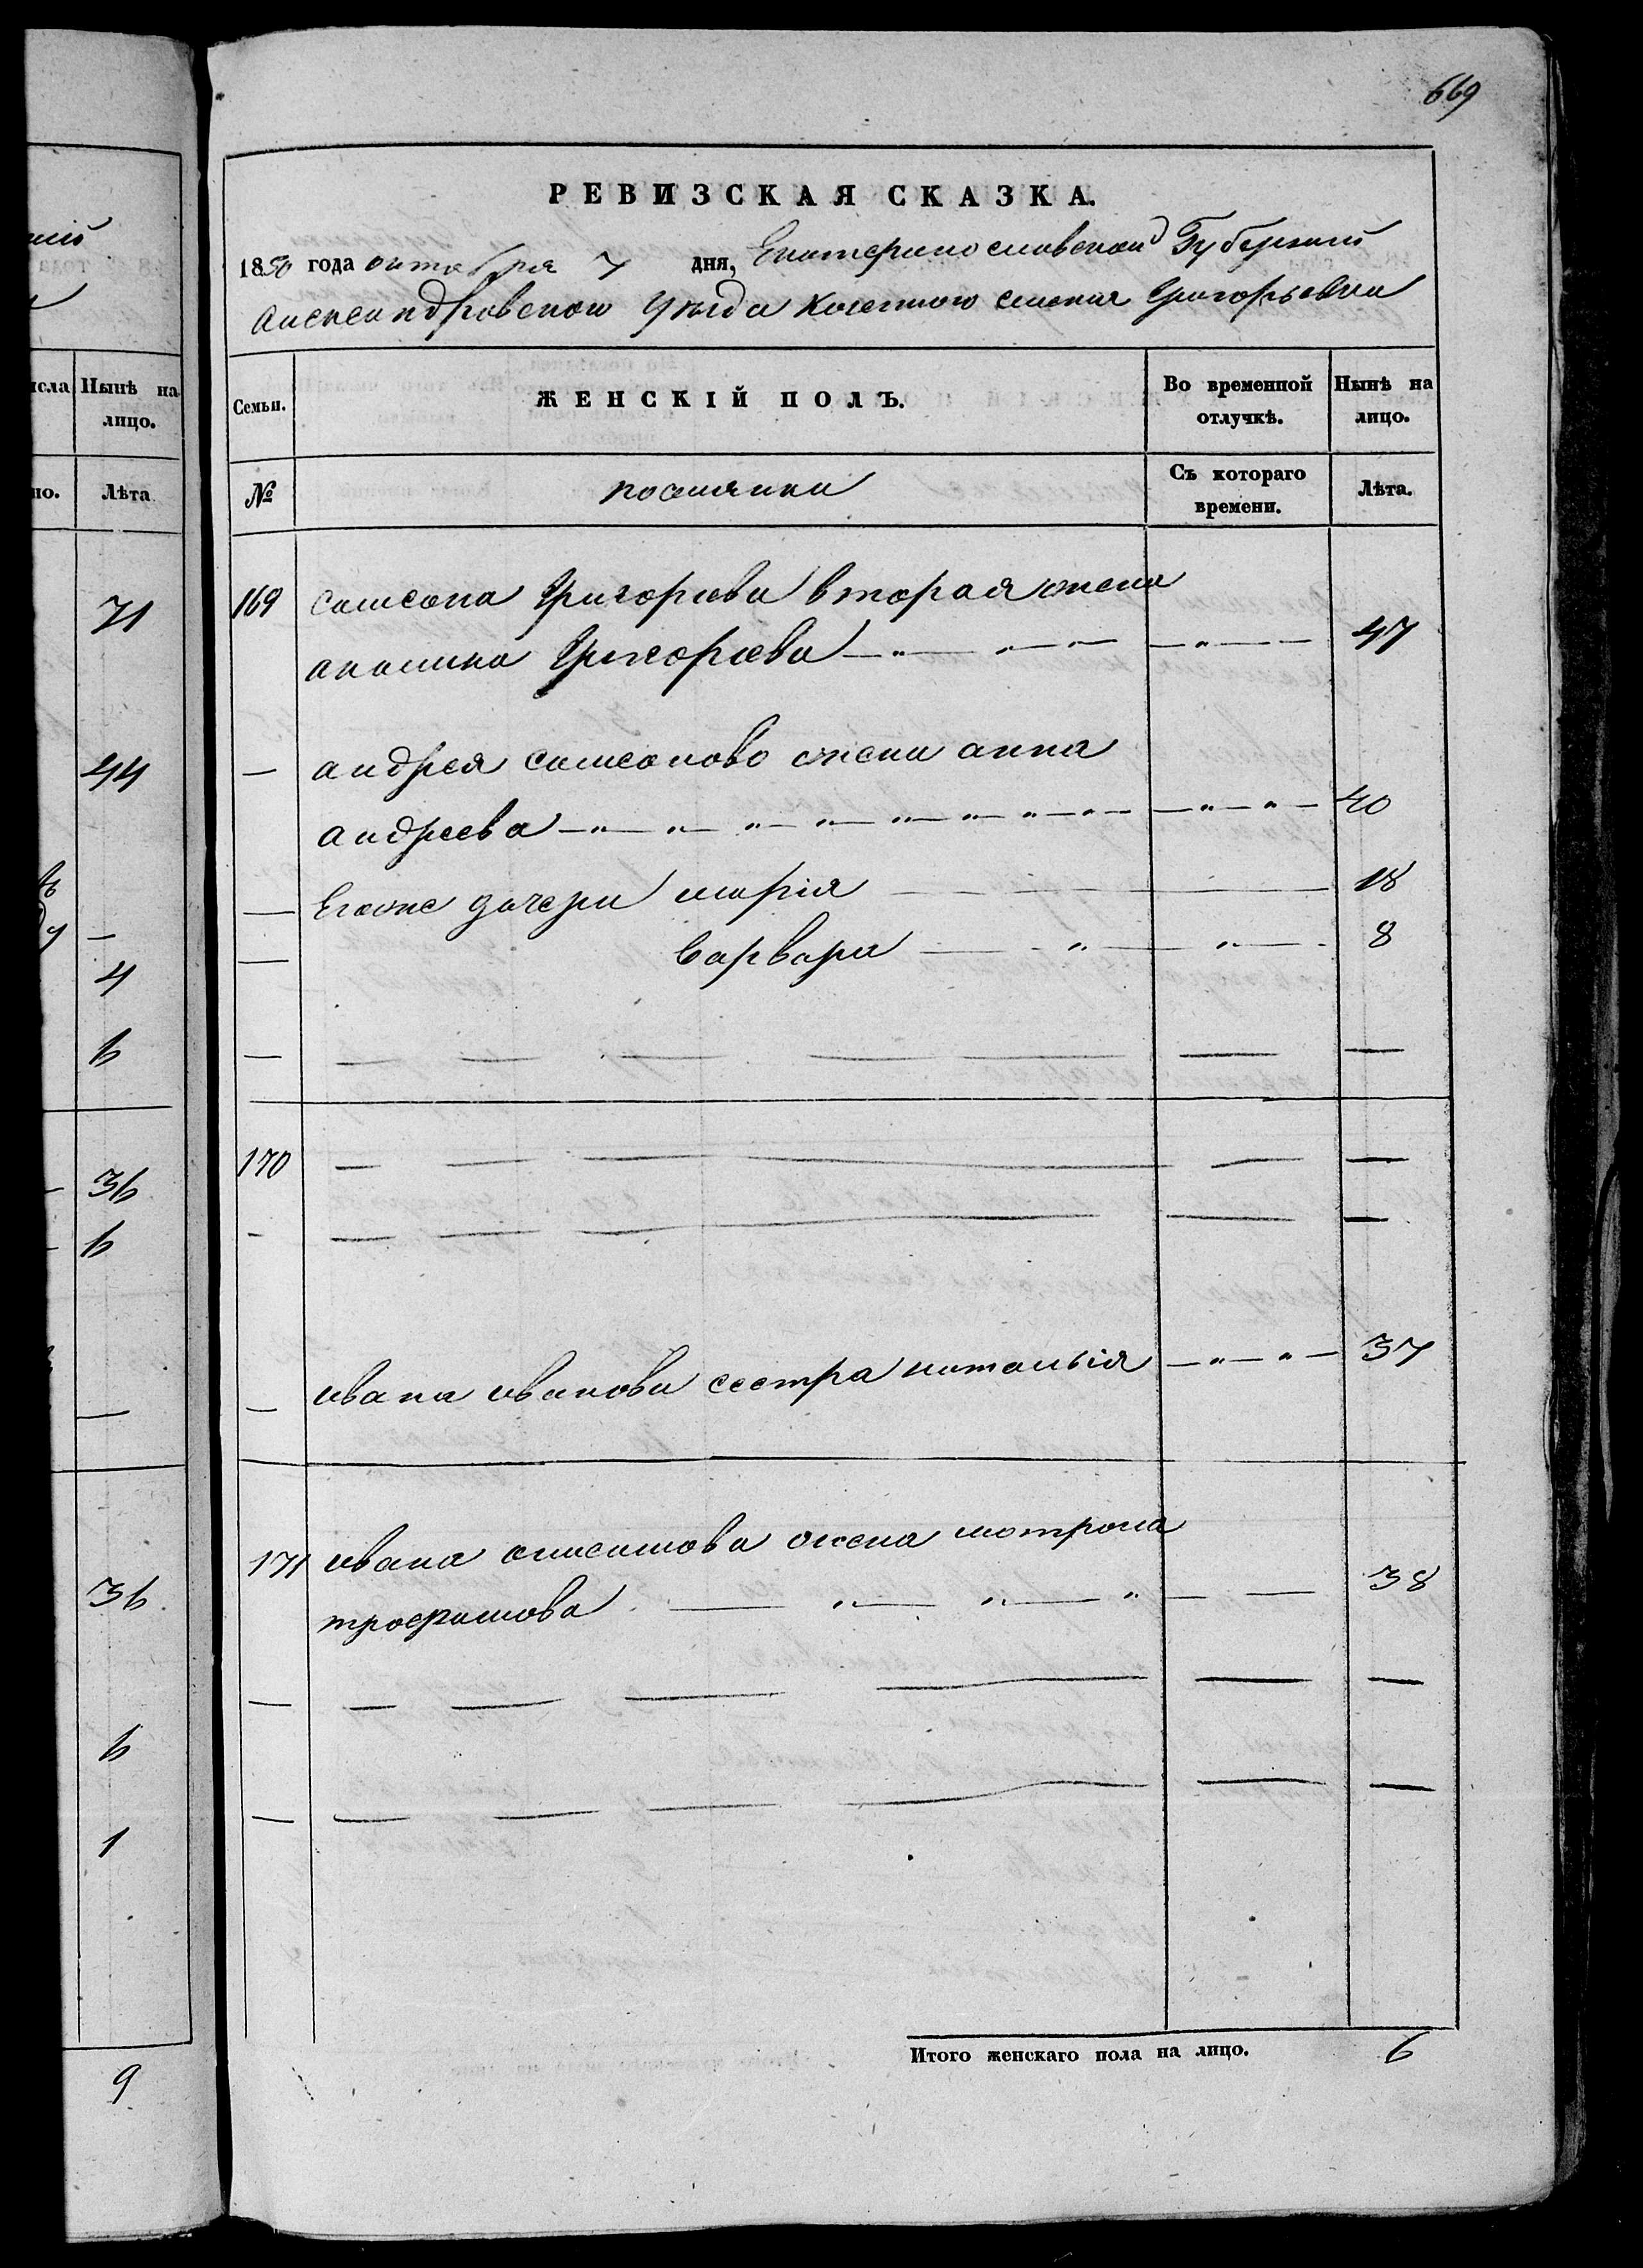 669
РЕВИЗСКАЯ СКАЗКА.
1850 года октября 7 дня, Екатеринославской Губернии
Александровскои уезда казенного селения Григорьевки
Семьи.
ЖЕНСКІЙ ПОЛЪ.
Во временной отлучкѣ.
Нынѣ на лицо.
№
поселянки
Съ котораго времени.
Лѣта.
169 самсона Григориева вторая жена
акилина Григориева 47
андрея самсоново жена анна
андреева 40
Егоже дочери мария 18
варвара 8
170
ивана иванова сестра наталыя 37
171 ивана анисимова жена мотрона
трофимова 38
Итого женскаго пола на лицо. 6
Нынѣ на лицо.
но.
Лѣта
71
44
4
6
36
6
36
6
1
9